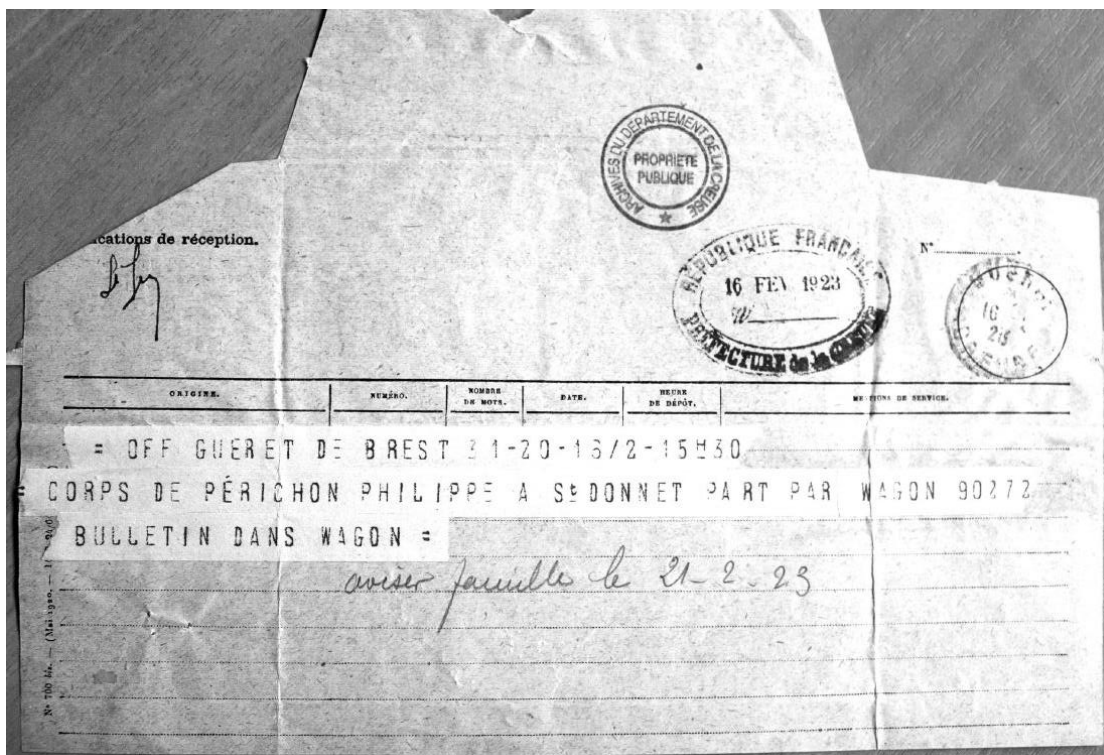 ARCHIVES DU DEPARTEMENT DE LA CREUSE
PROPRIETE
PUBLIQUE
cations de réception.
N°
REPUBLIQUE FRANÇAISE
16 FEV 1923
PREFECTURE de la CREUSE
ORIGINE. NUMÉRO. NOMBRE DE MOTS. DATE. HEURE DE DÉPÔT. MENTIONS DE SERVICE.
= OFF GUERET DE BREST 31-20-16/2-15H30
= CORPS DE PÉRICHON PHILIPPE A St DONNET PART PAR WAGON 90272
BULLETIN DANS WAGON =
aviser famille le 21-2-23